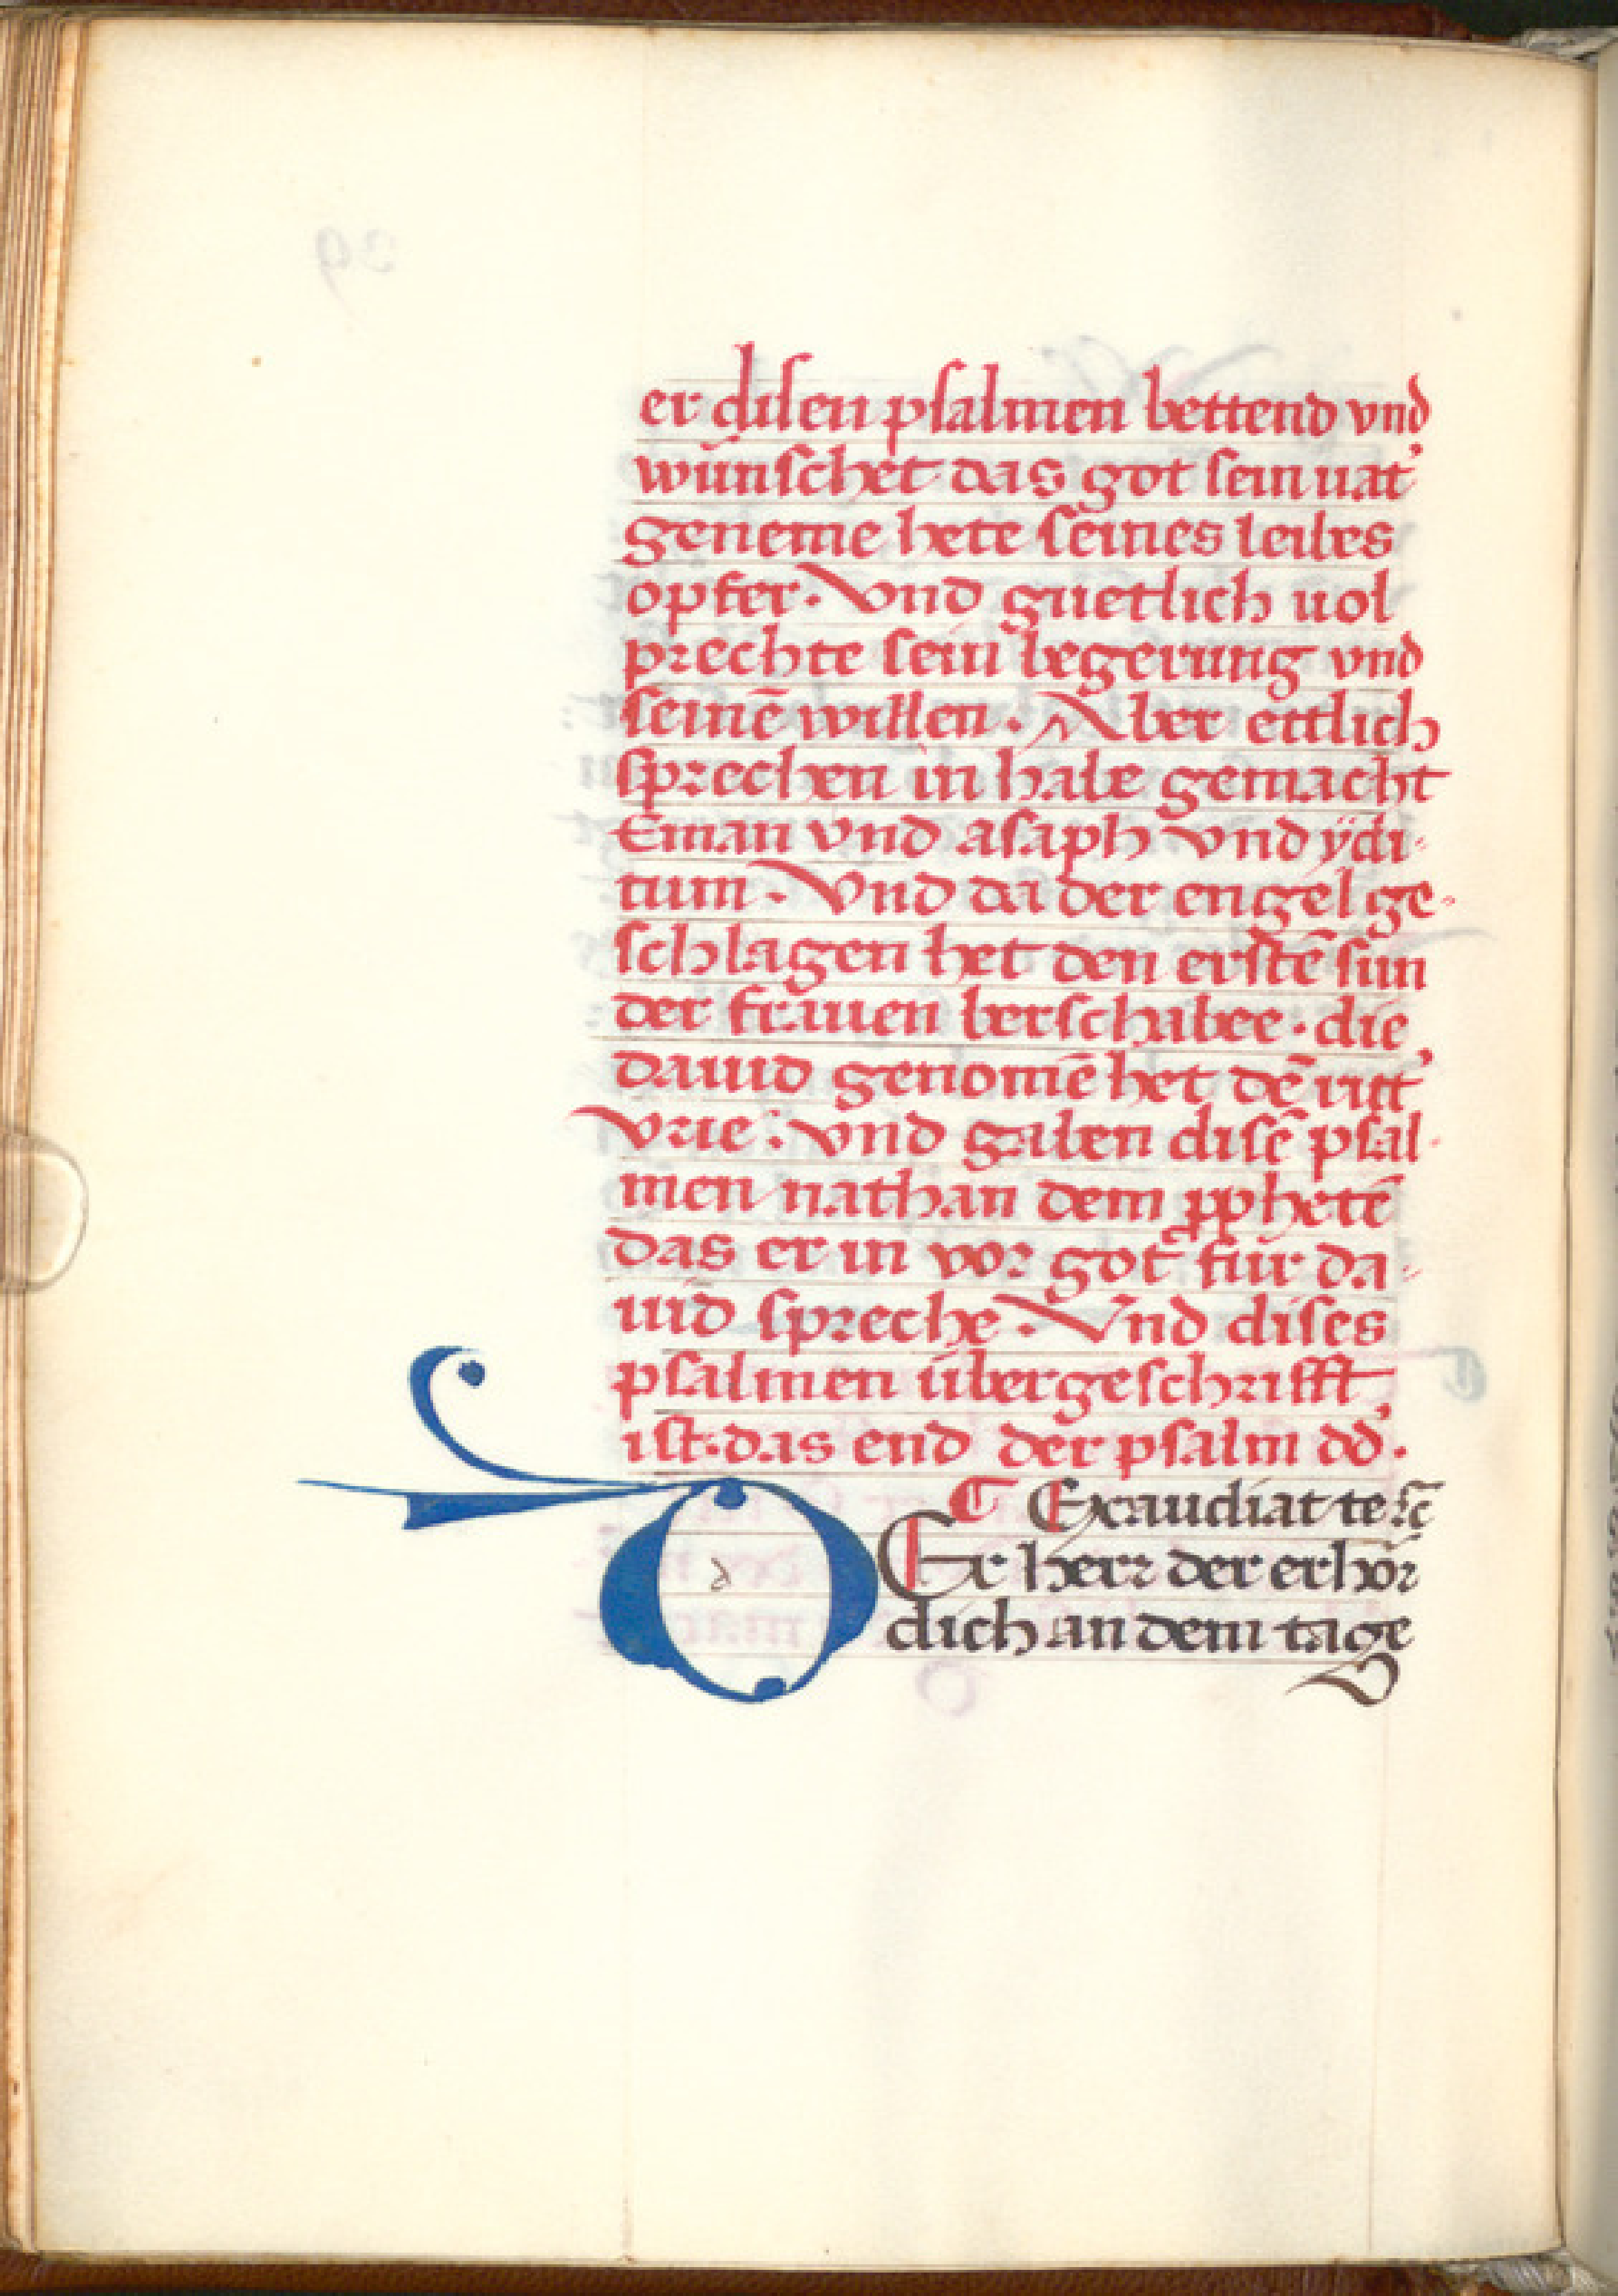 er disen psalmen bettend vnd
wünschet das got sein uat᾽
geneme hete seines leibes
opfer. Vnd guetlich uol
prechte sein begerung vnd
seinē willen. Aber ettlich
sprechen in habe gemacht
Eman vnd asaph vnd ydi-
tum. Vnd da der engel ge-
schlagen het den erstē sun
der frauen berschabee. die
dauid genomē het dē ritt᾽
vrie. vnd gaben disē psal-
men nathan dem ꝓphetē
das er in vor got für da-
uid spreche. Vnd dises
psalmen übergeschrifft
ist. das end der psalm dd᾽.
¶ Exaudiat te ſc̄
D Er herr der erhör
dich an dem tage